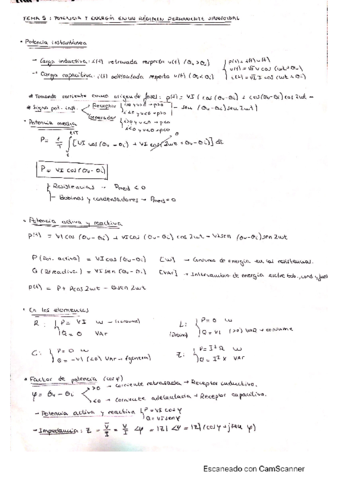 TEMA 5: POTENCIA Y ENERGÍA EN UN RÉGIMEN PERMANENTE SINUSOIDAL
• Potencia instantánea
- Carga inductiva: i(t) retrasada respecto v(t) (θv > θi)
- Carga capacitiva: i(t) adelantada respecto v(t) (θv < θi)
v(t) = √2 V cos (ωt + θv)
i(t) = √2 I cos (ωt + θi)
* Tomando corriente como origen de fases: p(t) = VI (cos (θv - θi) + cos (θv - θi) cos 2ωt -
- sen (θv - θi) sen 2ωt)
* Signo pot. inst. Receptor
Generador
• Potencia media
P = 1/T ∫ [VI cos (θv - θi) + VI cos (2ωt + θv - θi)] dt
P = VI cos (θv - θi)
Resistencias → Pmed
Bobinas y condensadores → Pmed = 0
• Potencia activa y reactiva
p(t) = VI cos (θv - θi) + VI cos (θv - θi) cos 2ωt - VI sen (θv - θi) sen 2ωt
P (Pot. activa) = VI cos (θv - θi) [W] → Consumo de energía en las resistencias.
Q (Reactiva) = VI sen (θv - θi) [Var] → Intercambios de energía entre bob. cond y
p(t) = P + P cos 2ωt - Q sen 2ωt
• En los elementos
R: P = VI W → consumo
Q = 0 Var
L: P = 0 W
Q = VI (>0) VAR → consume
C: P = 0 W
Q = -VI (<0) Var →
Z: P = I² R W
Q = I² X Var
• Factor de potencia (cos φ)
φ = θv - θi >0 → Corriente retrasada → Receptor inductivo.
<0 → Corriente adelantada → Receptor capacitivo.
- Potencia activa y reactiva P = VI cos φ
Q = VI sen φ
- Impedancia: Z = V/I = V/I ∠φ = |Z| ∠φ = |Z| (cos φ + j sen φ)
Escaneado con CamScanner